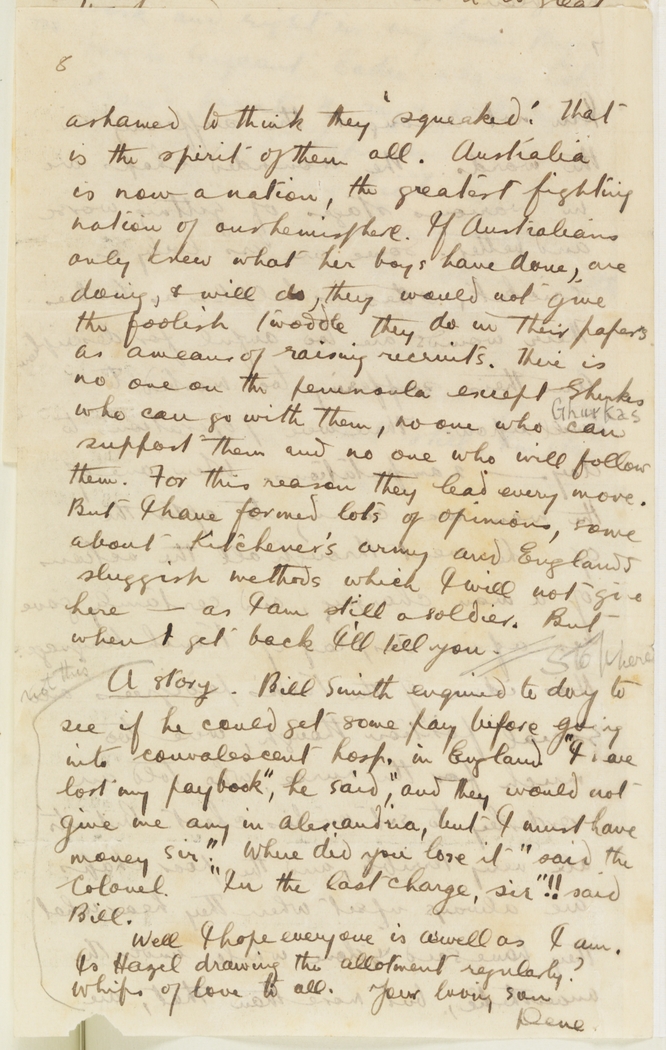 8
ashamed to think they 'squeaked'! That
is the spirit of them all. Australia
is now a nation, the greatest fighting
nation of our hemisphere. If Australians
only knew what her boys have done, are
doing, & will do, they would not give
the foolish twoddle they do in their papers
as a means of raising recruits. There is
no one on the peninsula except Ghurkas
Ghurkas
who can go with them, no one who can
support them and no one who will follow
them. For this reason they lead every move.
But I have formed lots of opinions, some
about Kitchener's army and England's
sluggish methods which I will not give
here — as I am still a soldier. But
when I get back I'll tell you.
Stop here
not this
A story. Bill Smith enquired to day to
see if he could get some pay before going
into convalescent hosp. in England "I have
lost my paybook", he said, "and they would not
give me any in Alexandria, but I must have
money sir". Where did you lose it" said the
Colonel. "In the last charge, sir"!! said
Bill.
Well I hope everyone is as well as I am.
Is Hazel drawing the allotment regularly?
Whips of love to all. Your loving son